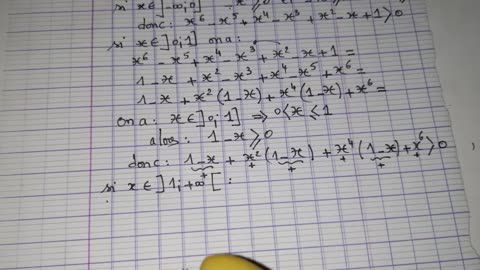 si x ∈ ]-∞;0]
donc: x⁶ - x⁵ + x⁴ - x³ + x² - x + 1 > 0
si x ∈ ]0;1] on a:
x⁶ - x⁵ + x⁴ - x³ + x² - x + 1 =
1 - x + x² - x³ + x⁴ - x⁵ + x⁶ =
1 - x + x²(1 - x) + x⁴(1 - x) + x⁶ =
on a: x ∈ ]0;1] ⇒ 0 < x ≤ 1
alors: 1 - x ≥ 0
donc: 1 - x + x²(1 - x) + x⁴(1 - x) + x⁶ > 0
+ + + + + +
si x ∈ ]1;+∞[ :